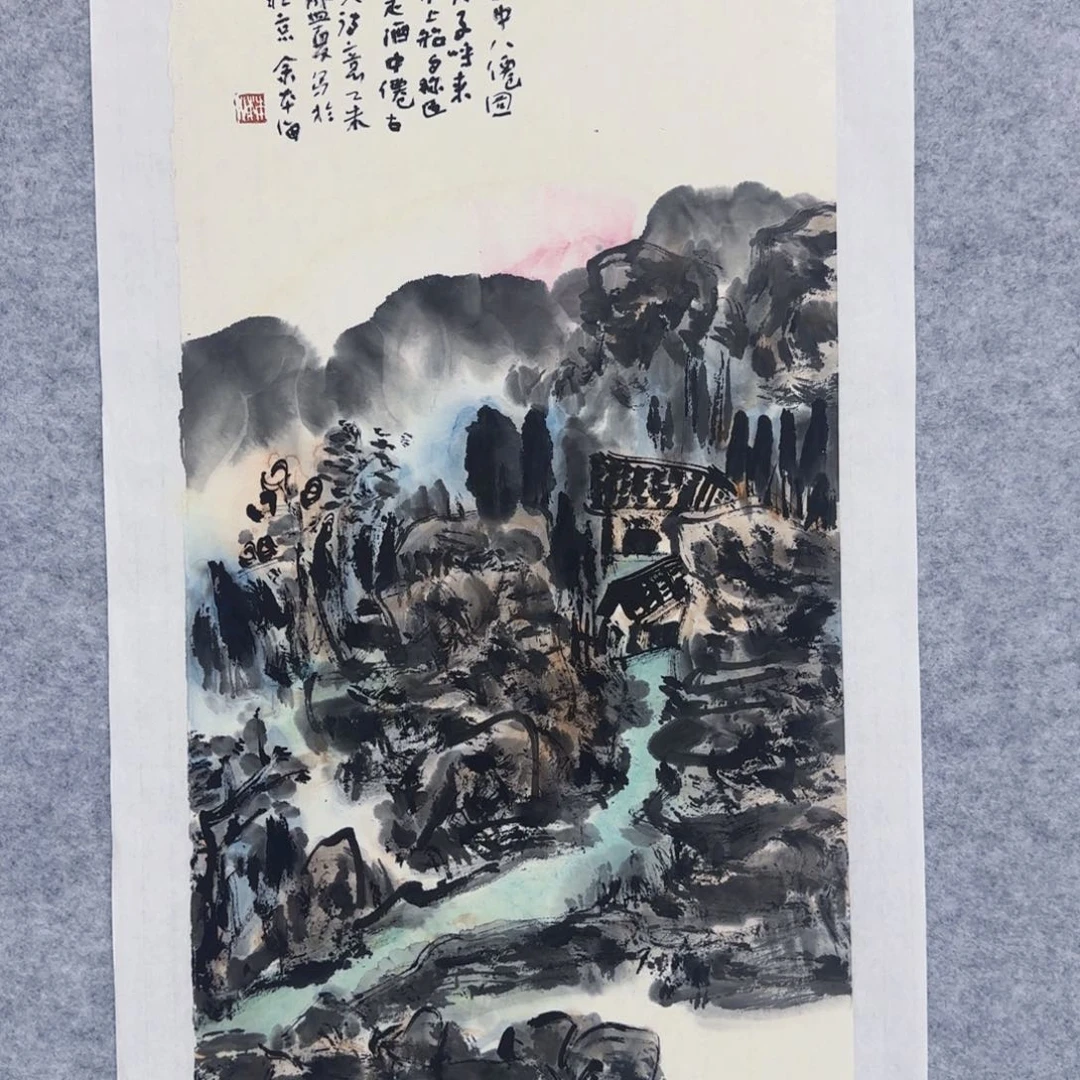 中八僊圖
子呼来
上船自称臣
是酒中僊古
人诗意乙未
夏写於
京 余本海